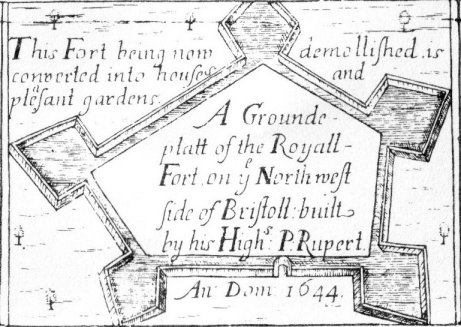 This Fort being now demollished is
converted into houses and
pleasant gardens
A Grounde-
platt of the Royall-
Fort on yͤ Northwest
side of Bristoll: built
by his Highˢ: P. Rupert.
An: Dom: 1644.